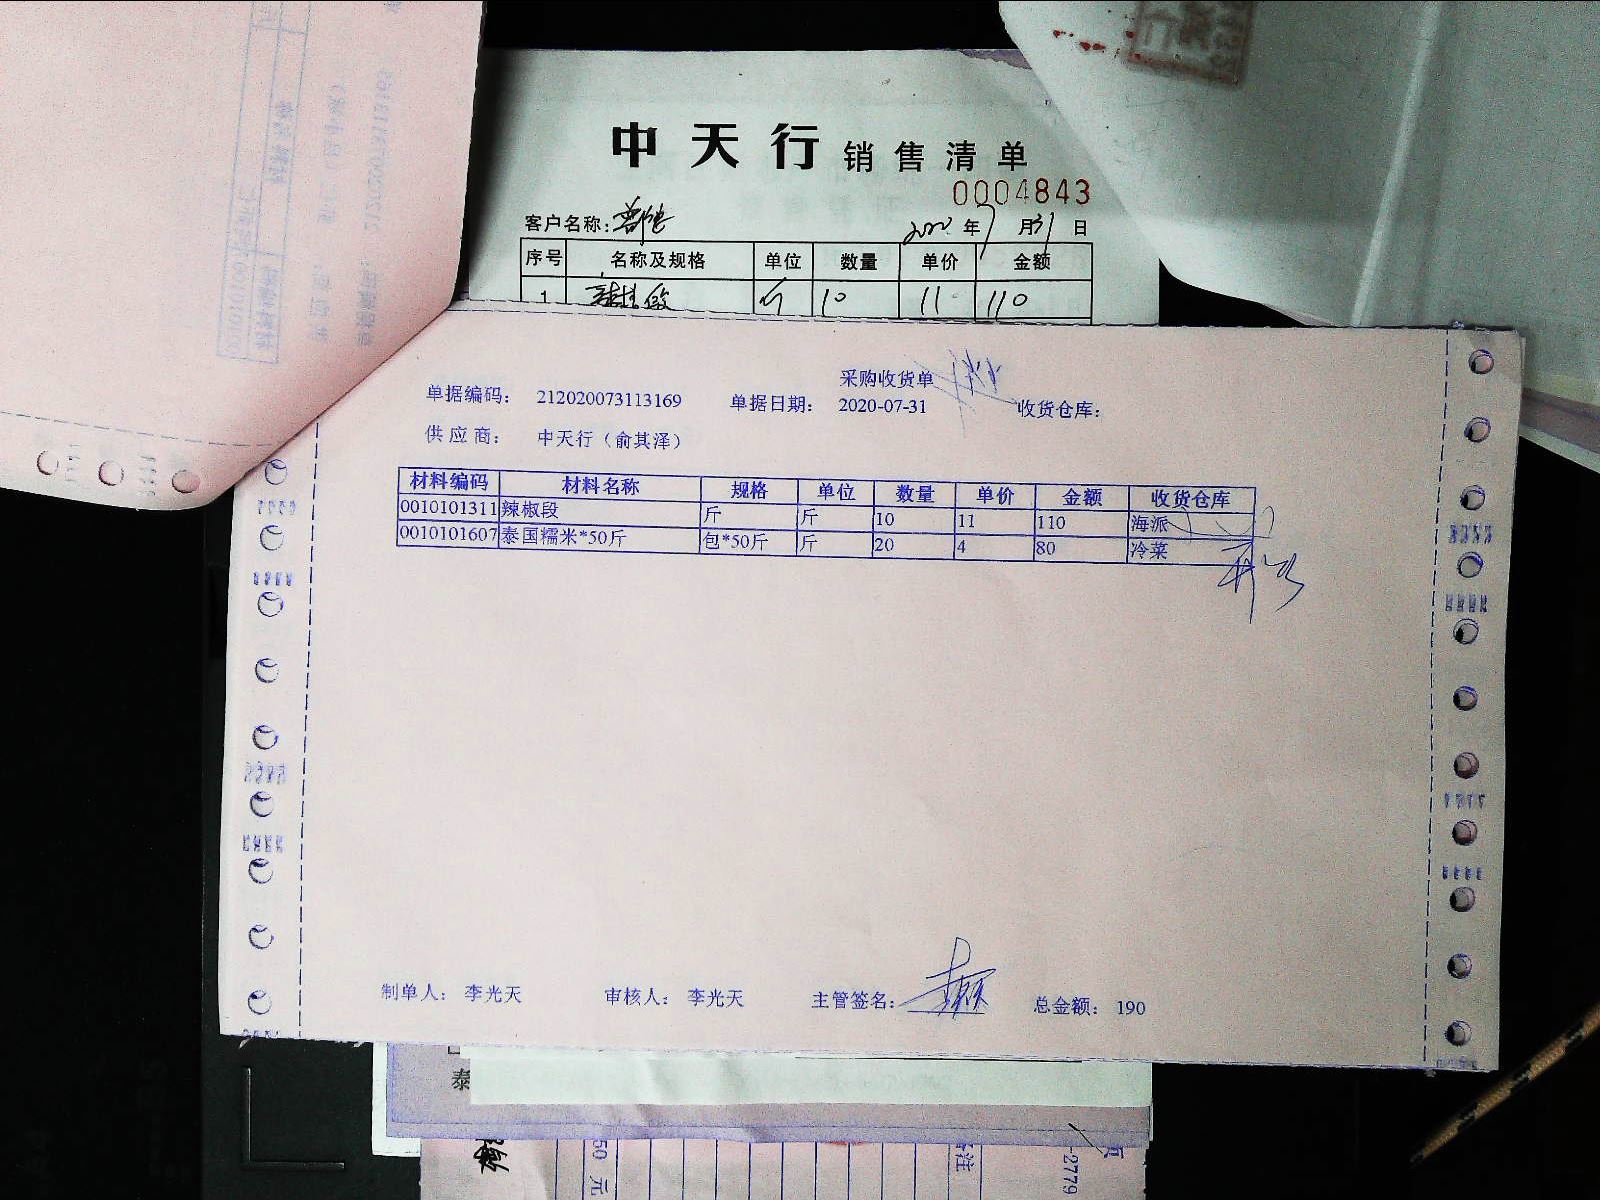 中天行 销售清单
0004843
客户名称:
2020年7月31日
序号 名称及规格 单位 数量 单价 金额
1 辣椒段 斤 10 11 110
采购收货单
单据编码: 212020073113169 单据日期: 2020-07-31 收货仓库:
供应商: 中天行（俞其泽）
材料编码 材料名称 规格 单位 数量 单价 金额 收货仓库
0010101311 辣椒段 斤 斤 10 11 110 海派
0010101607 泰国糯米*50斤 包*50斤 斤 20 4 80 冷菜
制单人: 李光天 审核人: 李光天 主管签名: 总金额: 190
泰
50 元
备注
-2779